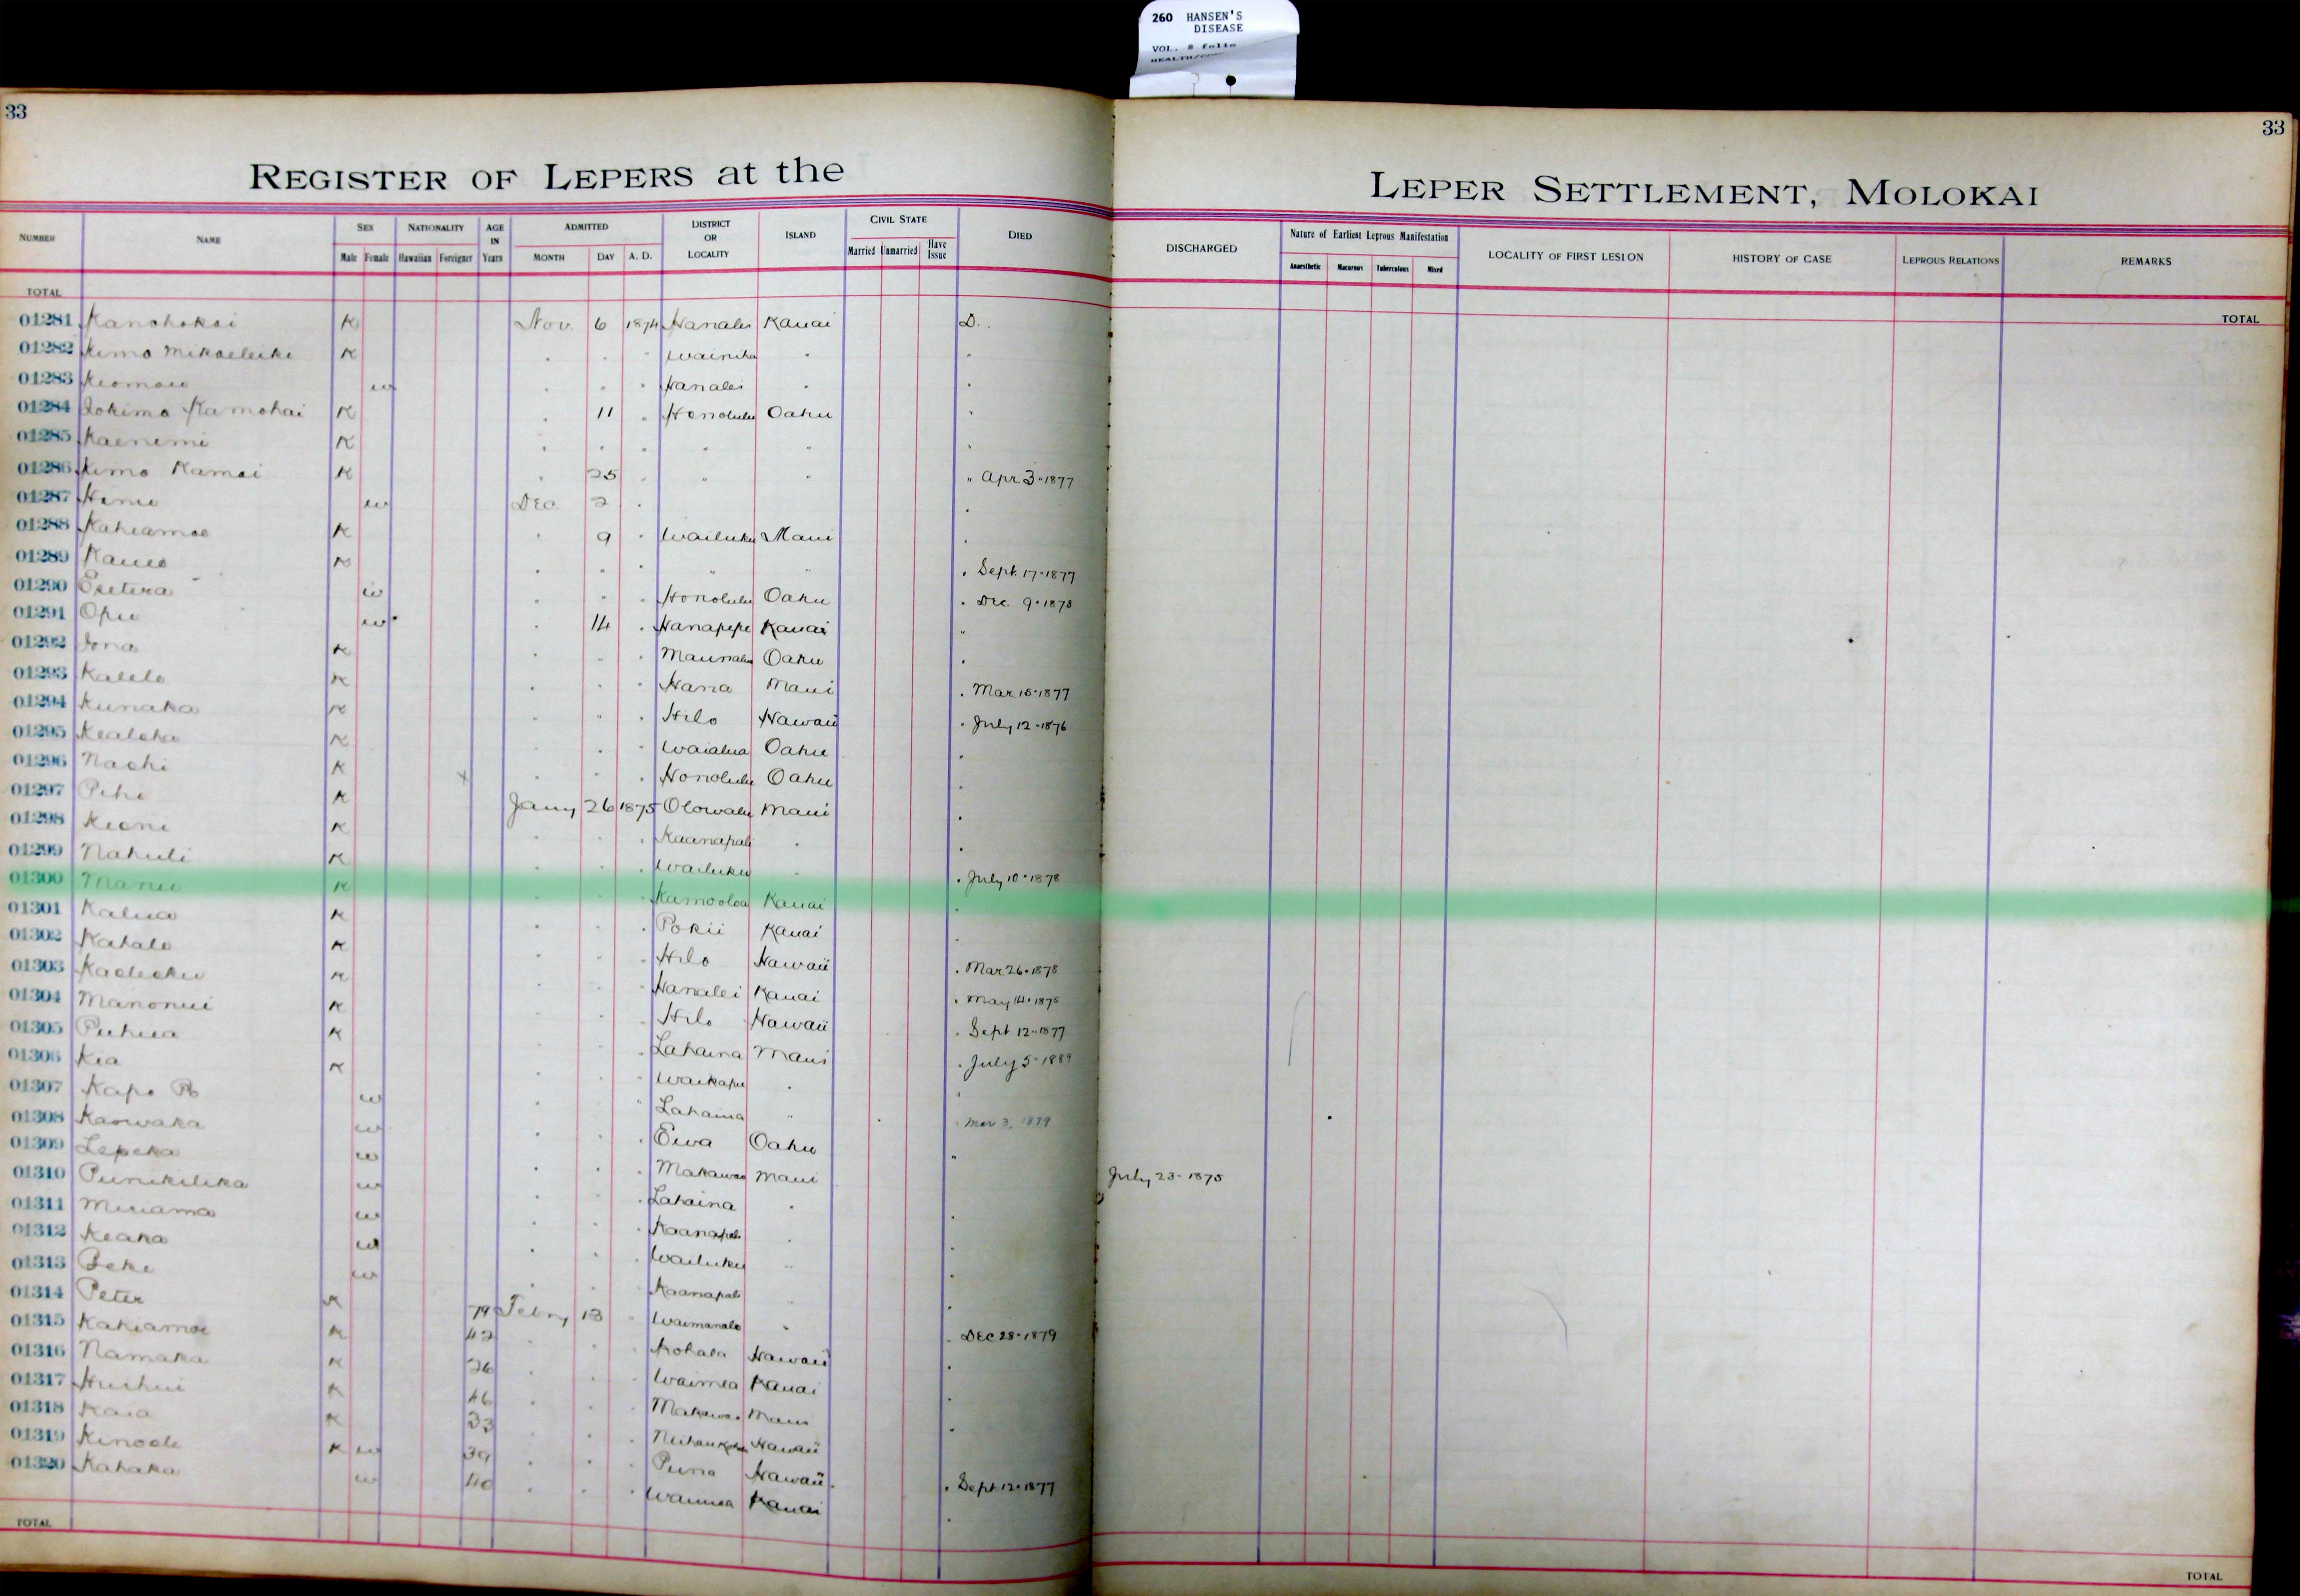 260 HANSEN'S
DISEASE
VOL. 8 folio
33
33
REGISTER OF LEPERS at the LEPER SETTLEMENT, MOLOKAI
NUMBER NAME SEX Male Female NATIONALITY Hawaiian Foreigner AGE IN Years ADMITTED MONTH DAY A. D. DISTRICT OR LOCALITY ISLAND CIVIL STATE Married Unmarried Have Issue DIED DISCHARGED Nature of Earliest Leprous Manifestation Anaesthetic Macurous Tuberculous Mixed LOCALITY OF FIRST LESION HISTORY OF CASE LEPROUS RELATIONS REMARKS
TOTAL TOTAL
01281 Kanohokai K Nov. 6 1874 Hanalei Kauai D.
01282 Kimo Mikaeleike K " " " Wainiha " "
01283 Keomaie w " " " Hanalei " "
01284 Iokimo Kamohai K " 11 " Honolulu Oahu "
01285 Kaenemi K " " " " " "
01286 Kimo Kamai K " 25 " " " " Apr 3-1877
01287 Hime w Dec. 2 " "
01288 Kahiamoe K " 9 " Wailuku Maui "
01289 Kaueo K " " " " " " Sept. 17-1877
01290 Esetera w " " " Honolulu Oahu " Dec. 9-1878
01291 Opu w " 14 " Hanapepe Kauai "
01292 Iona K " " " Maunalua Oahu "
01293 Kalelo K " " " Hana Maui " Mar 15-1877
01294 Kunaka K " " " Hilo Hawaii " July 12-1876
01295 Kealoha K " " " Waialua Oahu "
01296 Naohi K x " " " Honolulu Oahu "
01297 Pihi K Jany 26 1875 Olowalu Maui "
01298 Keoni K " " " Kaanapali " "
01299 Nahuli K " " " Wailuku " " July 10-1878
01300 Manu K " " " Kamooloa Kauai "
01301 Kalua K " " " Pokii Kauai "
01302 Kahalo K " " " Hilo Hawaii " Mar 26-1878
01303 Kaolioku K " " " Hanalei Kauai " May 14-1875
01304 Manonui K " " " Hilo Hawaii " Sept 12-1877
01305 Puhua K " " " Lahaina Maui " July 5-1889
01306 Kia K " " " Waikapu " "
01307 Kapo Po w " " " Lahaina " " Mar 3, 1879
01308 Kaowaka w " " " Ewa Oahu "
01309 Lepeka w " " " Makawao Maui July 23-1875
01310 Punikilika w " " " Lahaina " "
01311 Miriama w " " " Kaanapali " "
01312 Keaka w " " " Wailuku " "
01313 Beke w " " " Kaanapali " "
01314 Peter K 79 Febry 13 " Waimanalo " " Dec 28-1879
01315 Kahiamoe K 42 " " " Kohala Hawaii "
01316 Namaka K 26 " " " Waimea Kauai "
01317 Huihui K 46 " " " Makawao Maui "
01318 Kaia K 33 " " " Hawaii
01319 Kinoole K w 39 " " " Puna Hawaii " Sept 12-1877
01320 Kahaka w 40 " " " Waimea Kauai "
TOTAL TOTAL